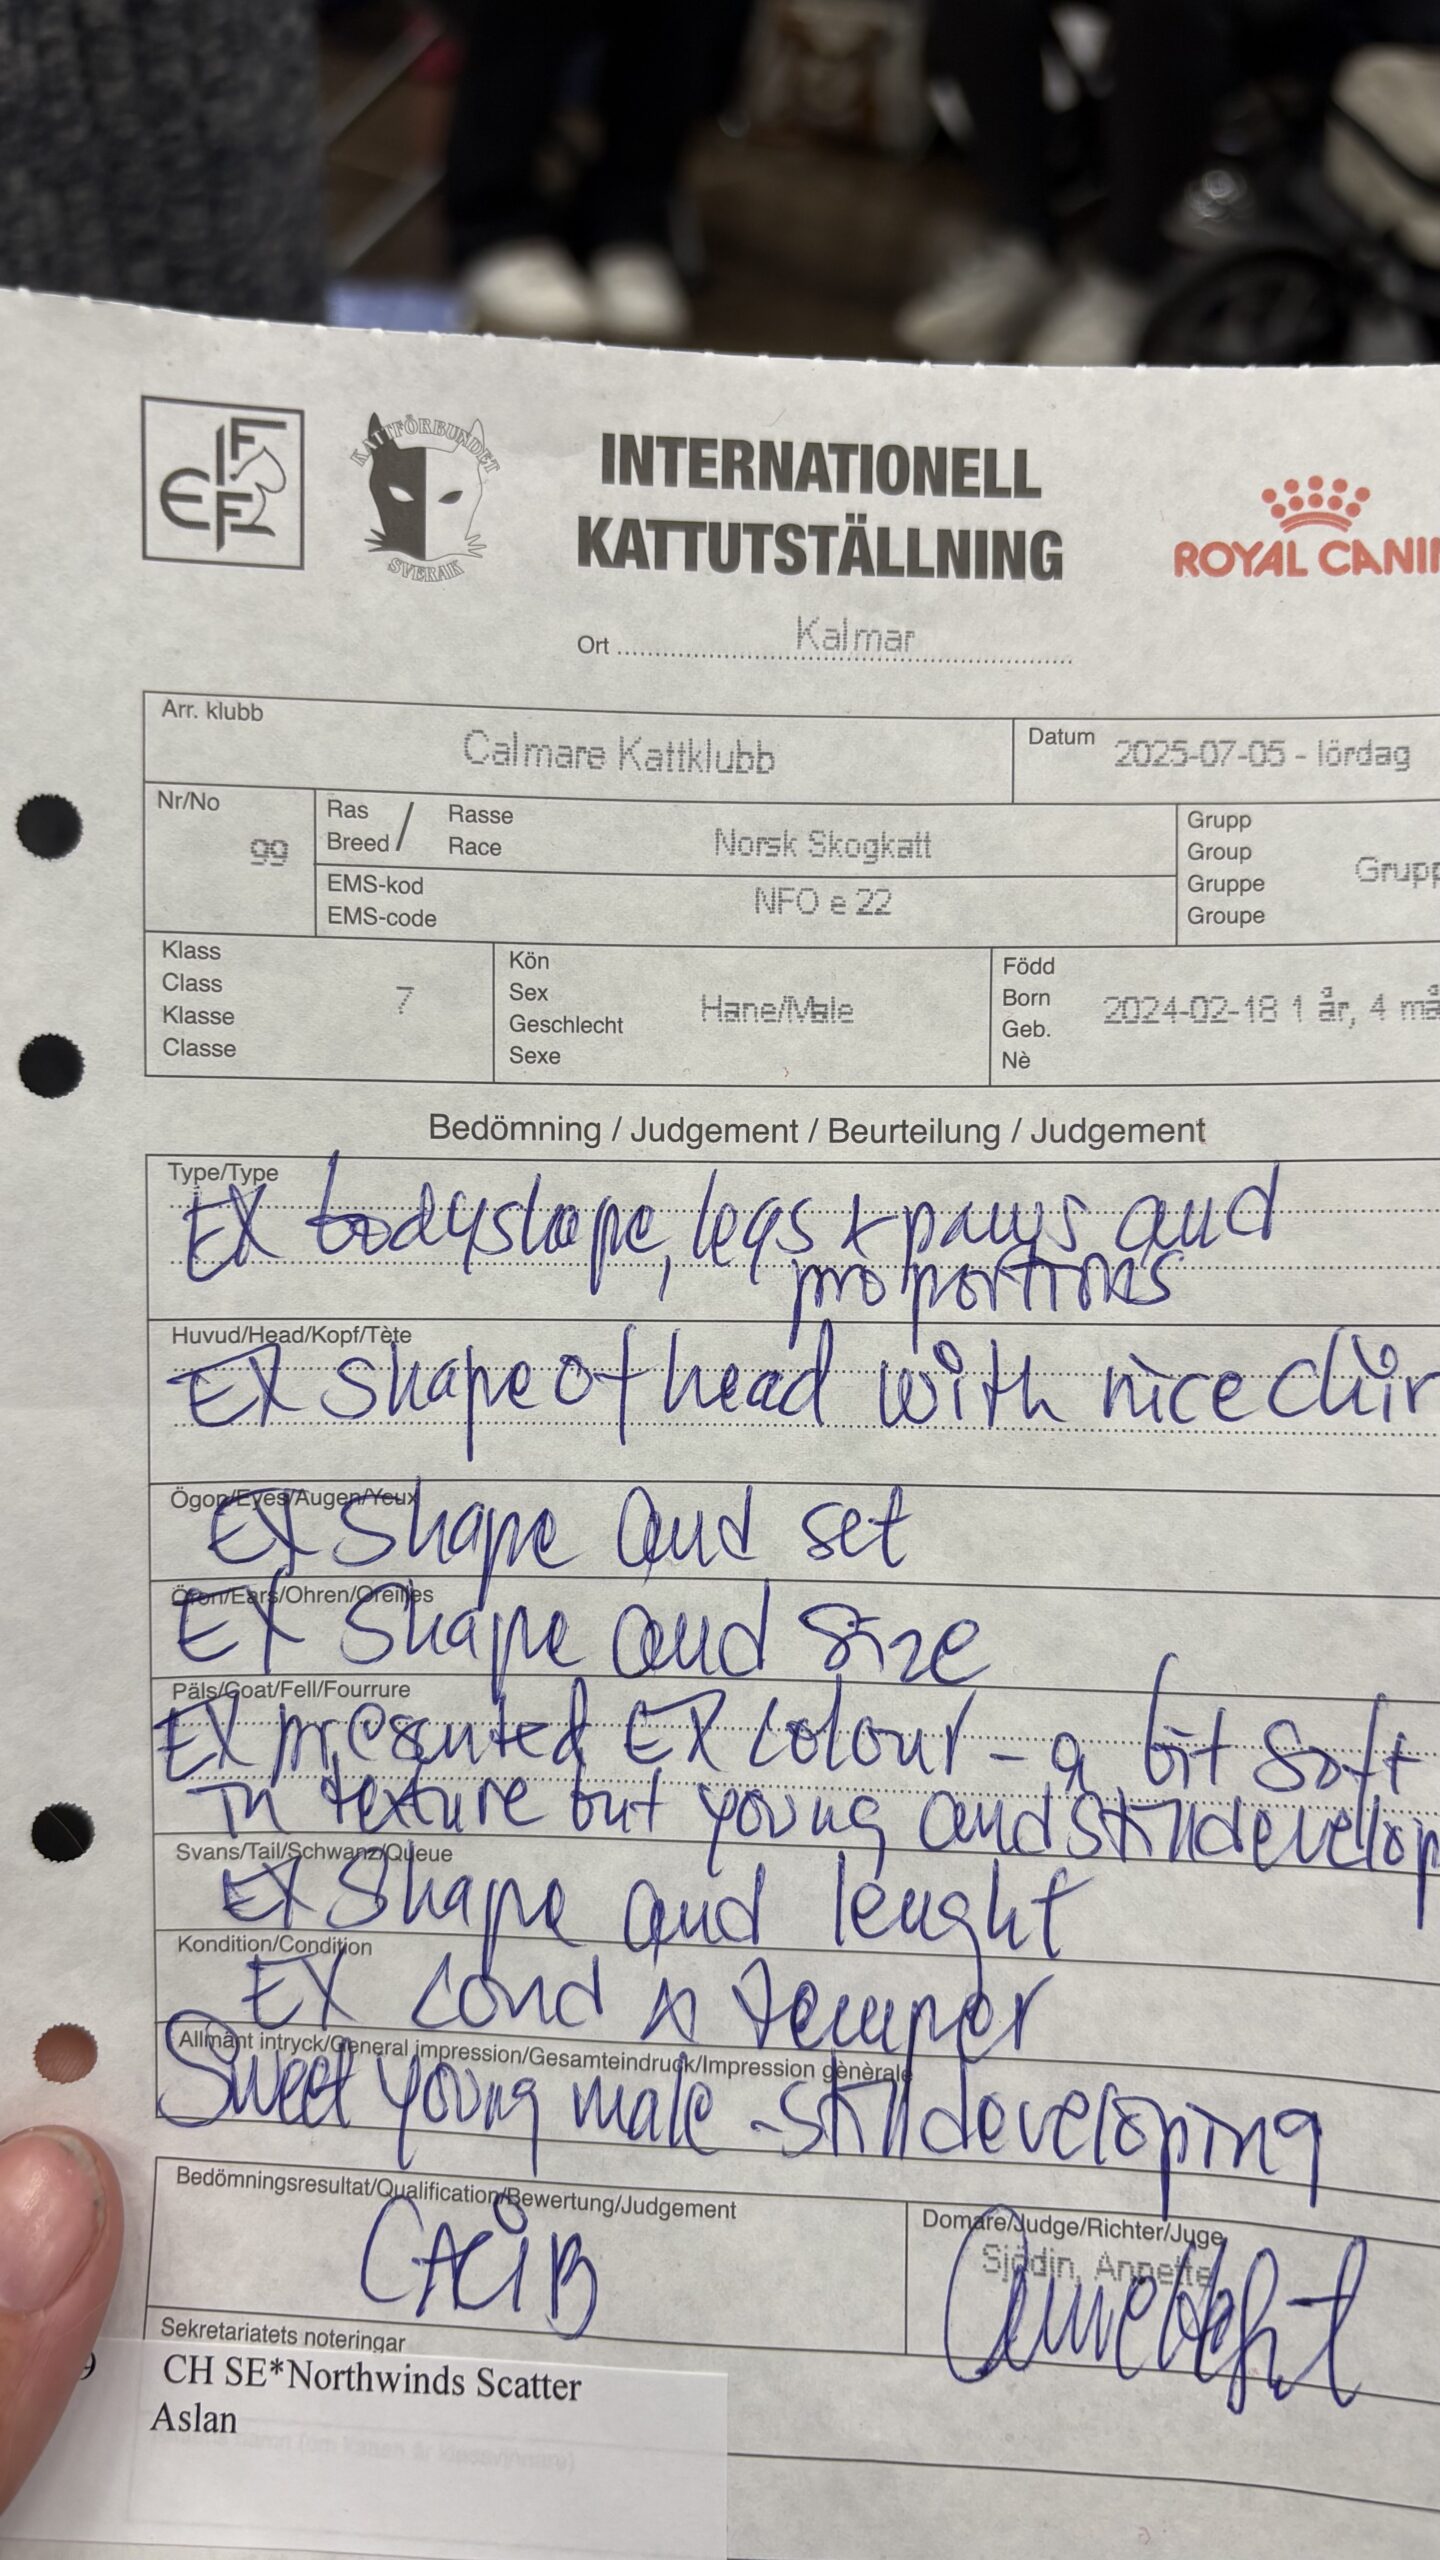 FIFe
KATTFÖRBUNDET
SVERAK
INTERNATIONELL
KATTUTSTÄLLNING
ROYAL CANIN
Ort Kalmar
Arr. klubb
Calmare Kattklubb
Datum 2025-07-05 - lördag
Nr/No
99
Ras
Breed / Rasse
Race
Norsk Skogkatt
EMS-kod
EMS-code
NFO e 22
Grupp
Group
Gruppe
Groupe
Grupp
Klass
Class
Klasse
Classe
7
Kön
Sex
Geschlecht
Sexe
Hane/Male
Född
Born
Geb.
Nè
2024-02-18 1 år, 4 må
Bedömning / Judgement / Beurteilung / Judgement
Type/Type
EX bodyshape, legs + paws and
proportions
Huvud/Head/Kopf/Tète
EX shape of head with nice chin
Ögon/Eyes/Augen/Yeux
EX shape and set
Öron/Ears/Ohren/Oreilles
EX shape and size
Päls/Coat/Fell/Fourrure
EX presented EX colour - a bit soft
in texture but young and still develop
Svans/Tail/Schwanz/Queue
EX shape and lenght
Kondition/Condition
EX cond & temper
Allmänt intryck/General impression/Gesamteindruck/Impression gènèrale
Sweet young male - still developing
Bedömningsresultat/Qualification/Bewertung/Judgement
CACIB
Domare/Judge/Richter/Juge
Sjödin, Annette
Sekretariatets noteringar
9
CH SE*Northwinds Scatter
Aslan